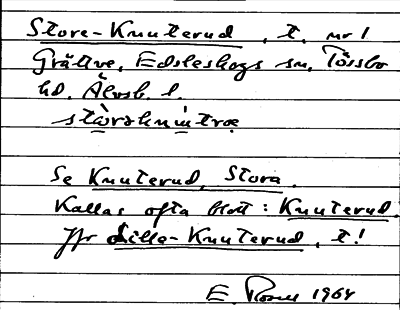 Store-Knuterud, t. nr 1
Gråttve, Edsleskogs sn, Tössbo
hd, Älvsb. l.
Se Knuterud, Stora.
Kallas ofta blott: Knuterud.
Jfr Lilla-Knuterud, t!
E. Rosell 1964